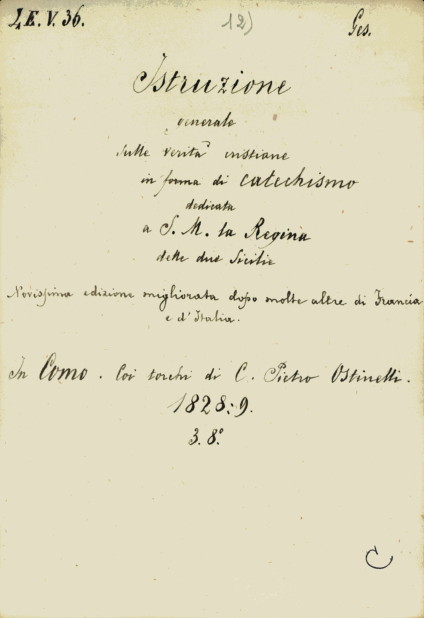 4.E.V.36. 12) Ges.
Istruzione
generale
sulle verità cristiane
in forma di catechismo
dedicata
a S. M. la Regina
delle due Sicilie
Novissima edizione migliorata dopo molte altre di Francia
e d'Italia.
In Como. Coi torchi di C. Pietro Ostinelli.
1828:9.
3. 8°.